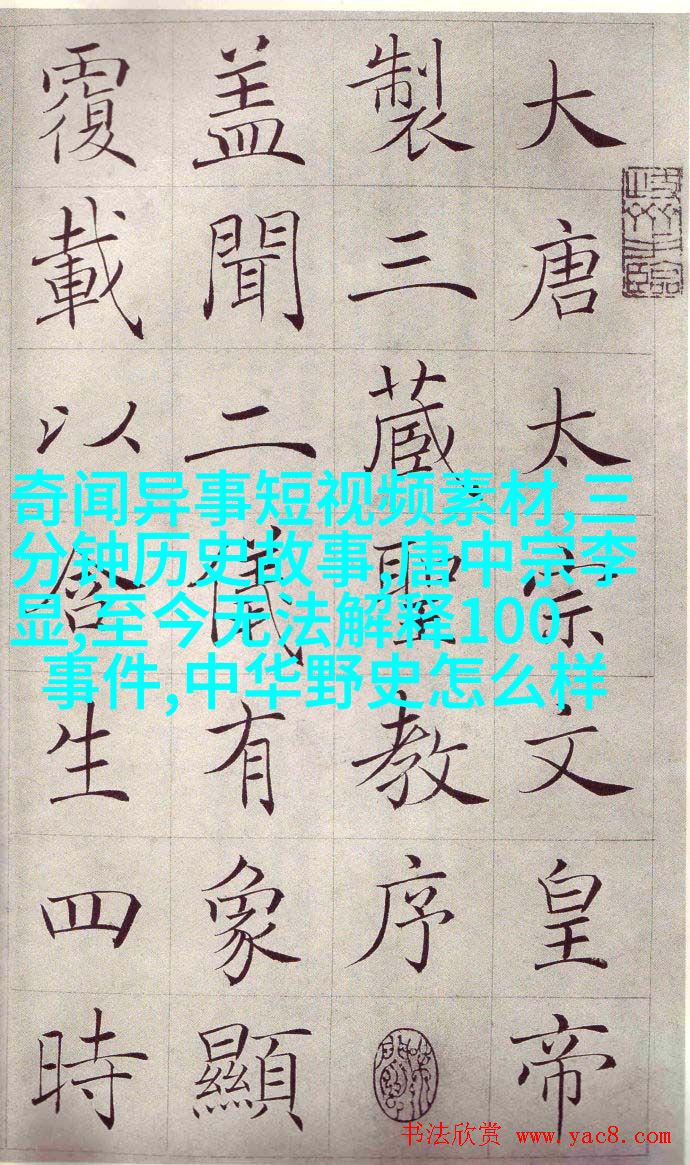 大唐太宗文皇帝
製三蔵聖教序
盖聞二儀有象顯
覆載以含生四時
奇闻异事短视频素材,三
分钟历史故事,唐中宗李
显,至今无法解释100
事件,中华野史怎么样
书法欣赏 www.yac8.com